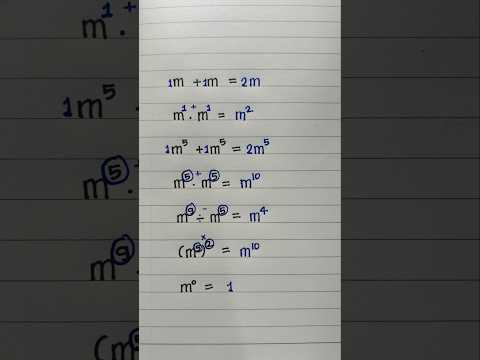 1m + 1m = 2m
m¹ ⁺ · m¹ = m²
1m⁵ + 1m⁵ = 2m⁵
m⁵ ⁺ · m⁵ = m¹⁰
m⁹ ⁻ ÷ m⁵ = m⁴
(m⁵)ˣ² = m¹⁰
m⁰ = 1